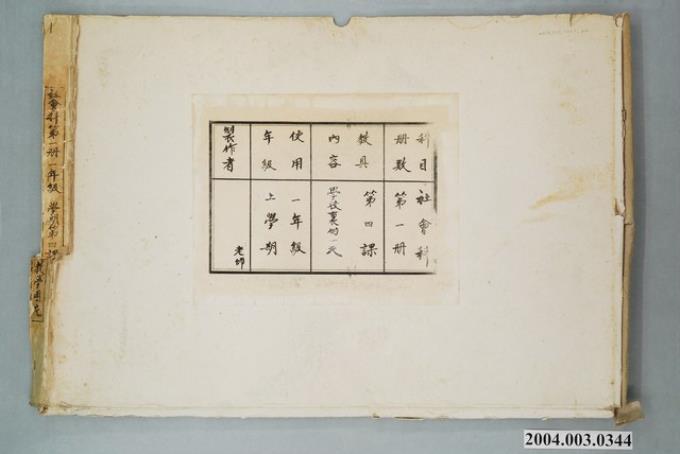 科目 社會科
册數 第一册
教具 第四課
內容 學校裏的一天
使用 一年級
年級 上學期
製作者 老師
社會科第一册 一年級 上學期第四課
2004.003.0344